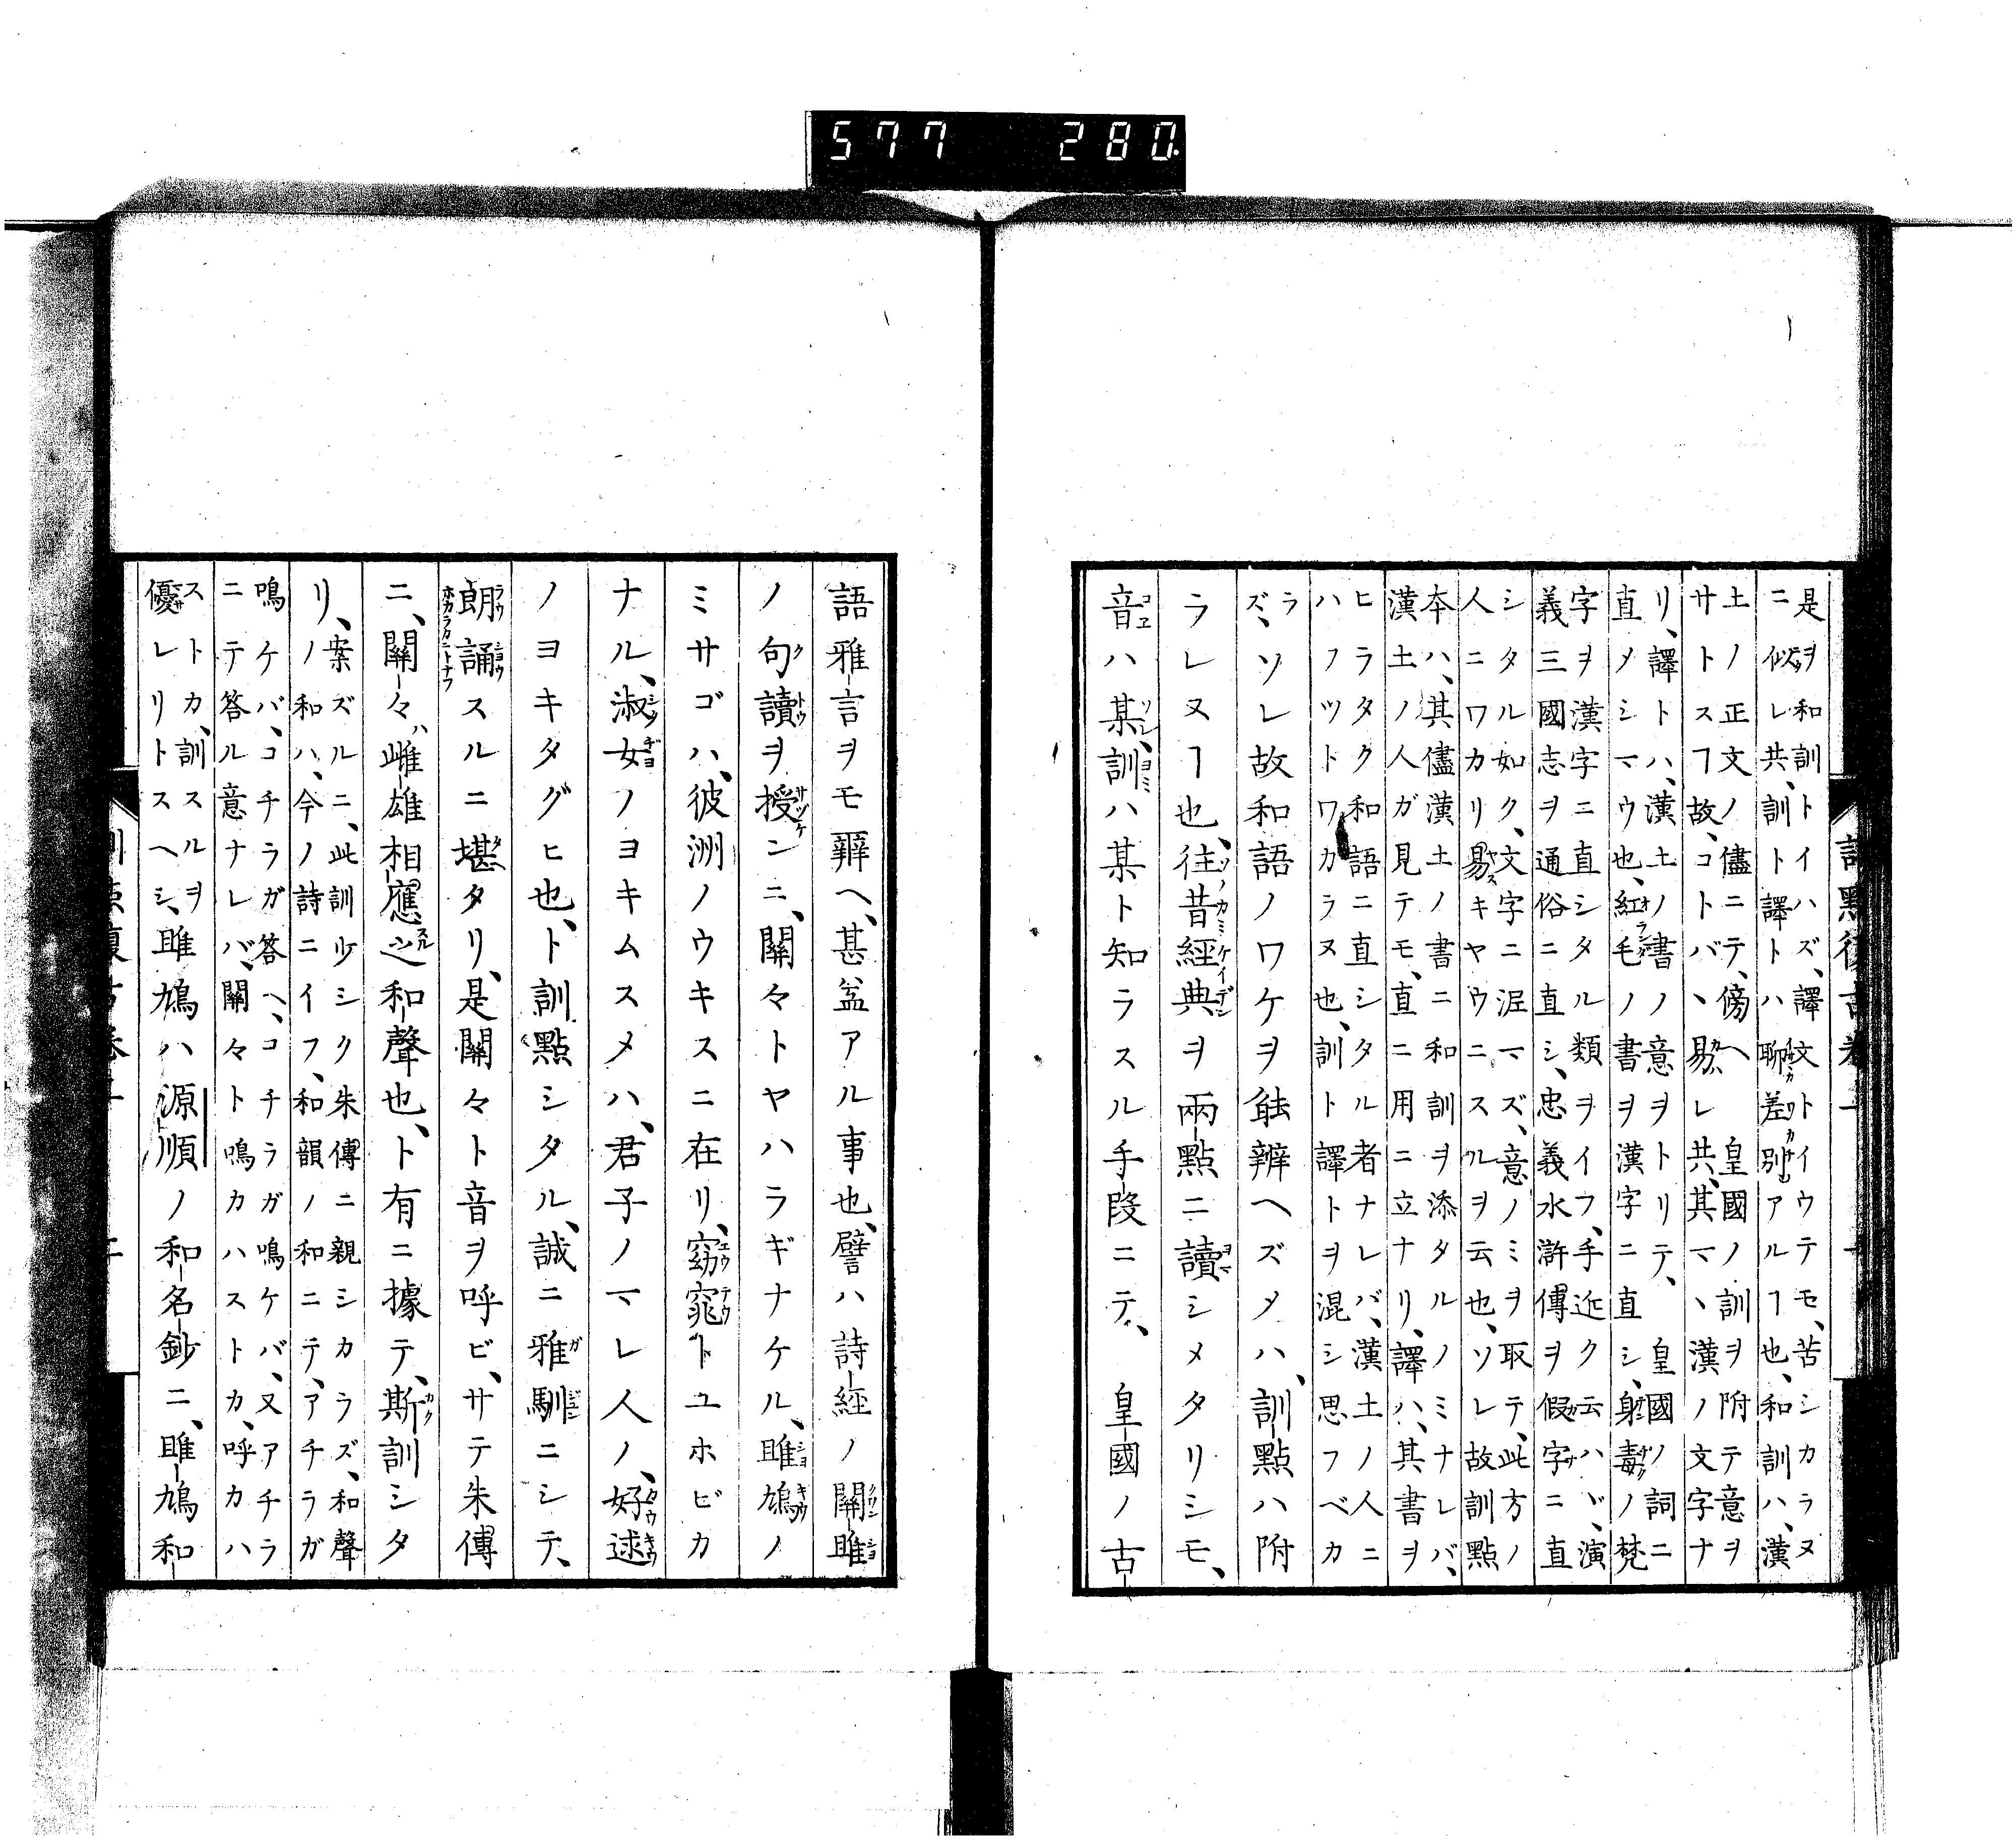 577 280
是ヲ和訓トイハズ、譯文トイウテモ、苦シカラヌ
ニ似レ共、訓ト譯トハ聊差別アルヿ也、和訓ハ、漢
土ノ正文ノ儘ニテ、傍ヘ皇國ノ訓ヲ附テ意ヲ
サトスヿ故、コトバヽ易レ共、其マヽ漢ノ文字ナ
リ、譯トハ、漢土ノ書ノ意ヲトリテ、皇國ノ詞ニ
直メシマウ也、紅毛ノ書ヲ漢字ニ直シ、身毒ノ梵
字ヲ漢字ニ直シタル類ヲイフ、手近ク云ハヾ、演
義三國志ヲ通俗ニ直シ、忠義水滸傳ヲ假字ニ直
シタル如ク、文字ニ泥マズ、意ノミヲ取テ、此方ノ
人ニワカリ易キヤウニスルヲ云也、ソレ故訓點
本ハ、其儘漢土ノ書ニ和訓ヲ添タルノミナレバ、
漢土ノ人ガ見テモ、直ニ用ニ立ナリ、譯ハ、其書ヲ
ヒラタク和語ニ直シタル者ナレバ、漢土ノ人ニ
ハフツトワカラヌ也、訓ト譯トヲ混シ思フベカ
ラズ、ソレ故和語ノワケヲ能辨ヘズメハ、訓點ハ附
ラレヌヿ也、往昔經典ヲ兩點ニ讀シメタリシモ、
音ハ某、訓ハ某ト知ラスル手段ニテ、皇國ノ古
語雅言ヲモ辨ヘ、甚益アル事也、譬ハ詩經ノ關雎
ノ句讀ヲ授ンニ、關々トヤハラギナケル、雎鳩ノ
ミサゴハ、彼洲ノウキスニ在リ、窈窕トユホビカ
ナル、淑女ノヨキムスメハ、君子ノマレ人ノ、好逑
ノヨキタグヒ也、ト訓點シタル、誠ニ雅馴ニシテ、
朗誦スルニ堪タリ、是關々ト音ヲ呼ビ、サテ朱傳
ニ、關々、雌雄相應之和聲也、ト有ニ據テ、斯訓シタ
リ、案ズルニ、此訓少シク朱傳ニ親シカラズ、和聲
ノ和ハ、今ノ詩ニイフ、和韻ノ和ニテ、アチラガ
鳴ケバ、コチラガ答ヘ、コチラガ鳴ケバ、又アチラ
ニテ答ル意ナレバ、關々ト鳴カハストカ、呼カハ
ストカ、訓スルヲ
優レリトスヘシ、雎鳩ハ源順ノ和名鈔ニ、雎鳩和